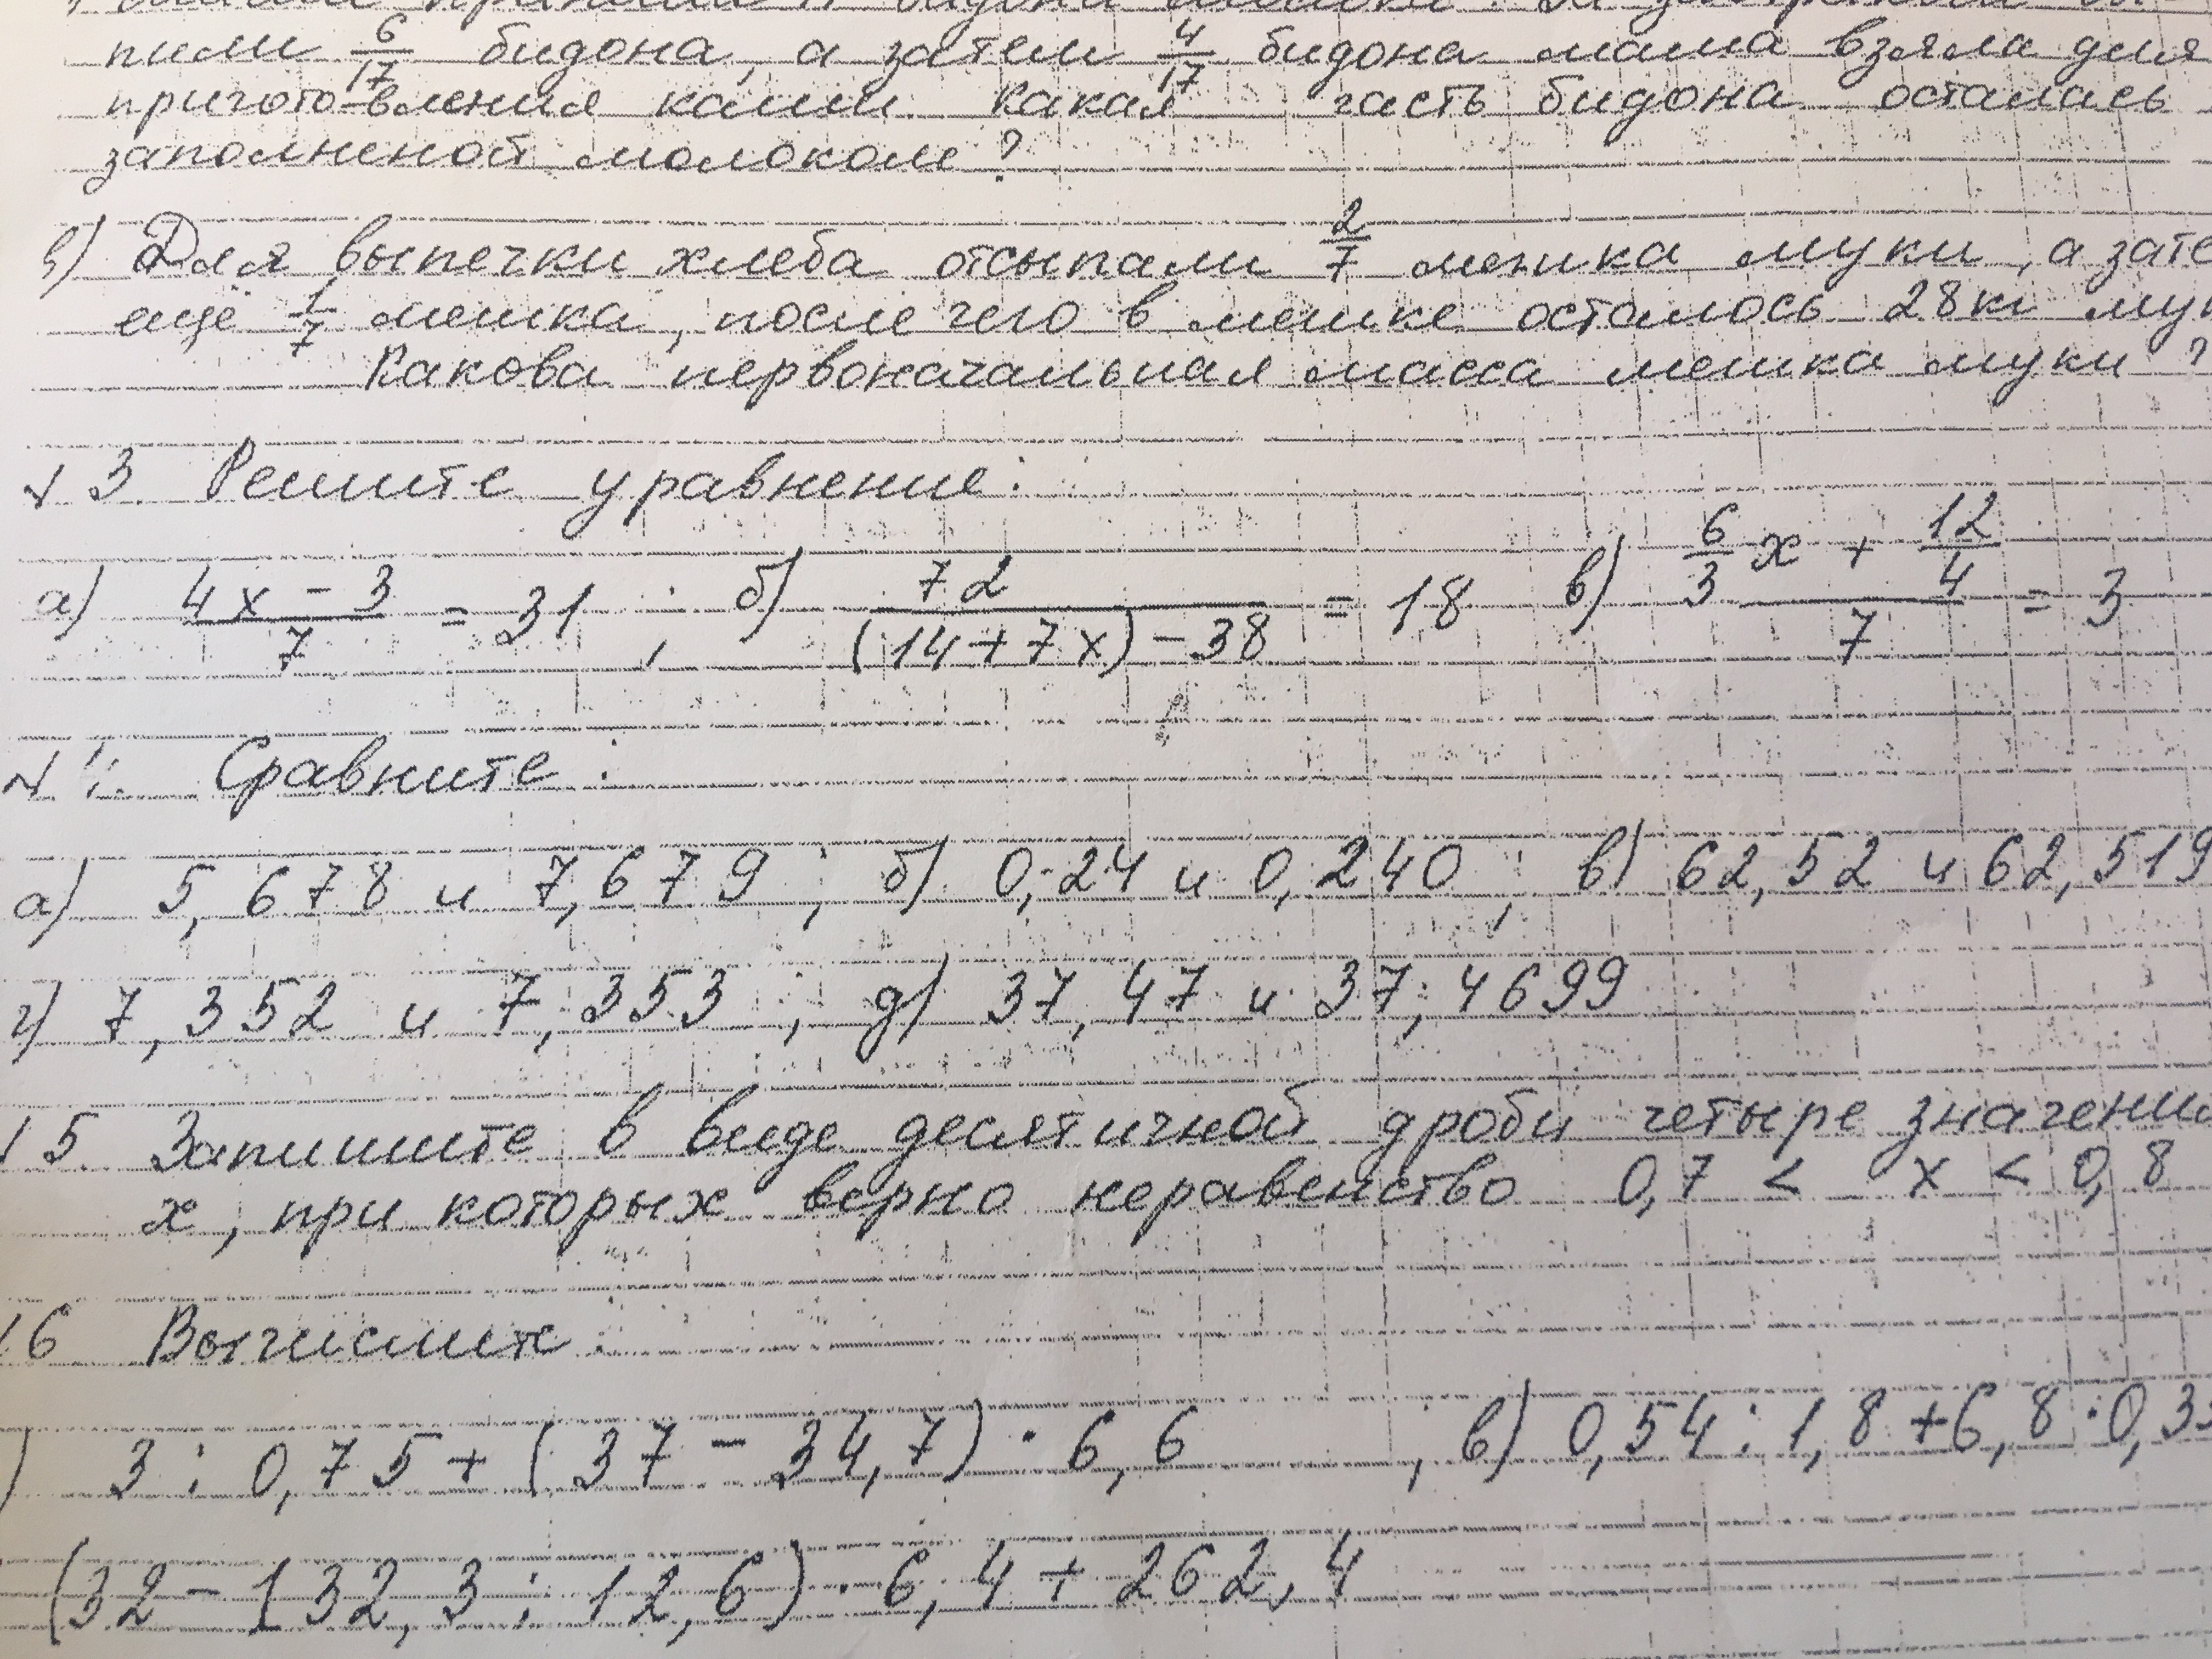 пили 6/17 бидона, а затем 4/17 бидона мама взяла для
приготовления каши. Какая часть бидона осталась
заполненой молоком?
в) Для выпечки хлеба отсыпали 2/7 мешка муки, а зате
ещё 1/7 мешка, после чего в мешке осталось 28кг мук
Какова первоначальная масса мешка муки?
№3. Решите уравнение:
а) (4x - 3)/7 = 31 ; б) 72/((14+7x)-38) = 18 в) (6/3 x + 12/4)/7 = 3
№4. Сравните:
а) 5,678 и 7,679 ; б) 0,24 и 0,240 ; в) 62,52 и 62,519
г) 7,352 и 7,353 ; д) 37,47 и 37,4699
5. Запишите в виде десятичной дроби четыре значени
x, при которых верно неравенство 0,7 < x < 0,8
6 Вычислите:
) 3 : 0,75 + (37 - 34,7) · 6,6 ; в) 0,54 : 1,8 + 6,8 · 0,3
(32 - 132,3 : 12,6) · 6,4 + 262,4